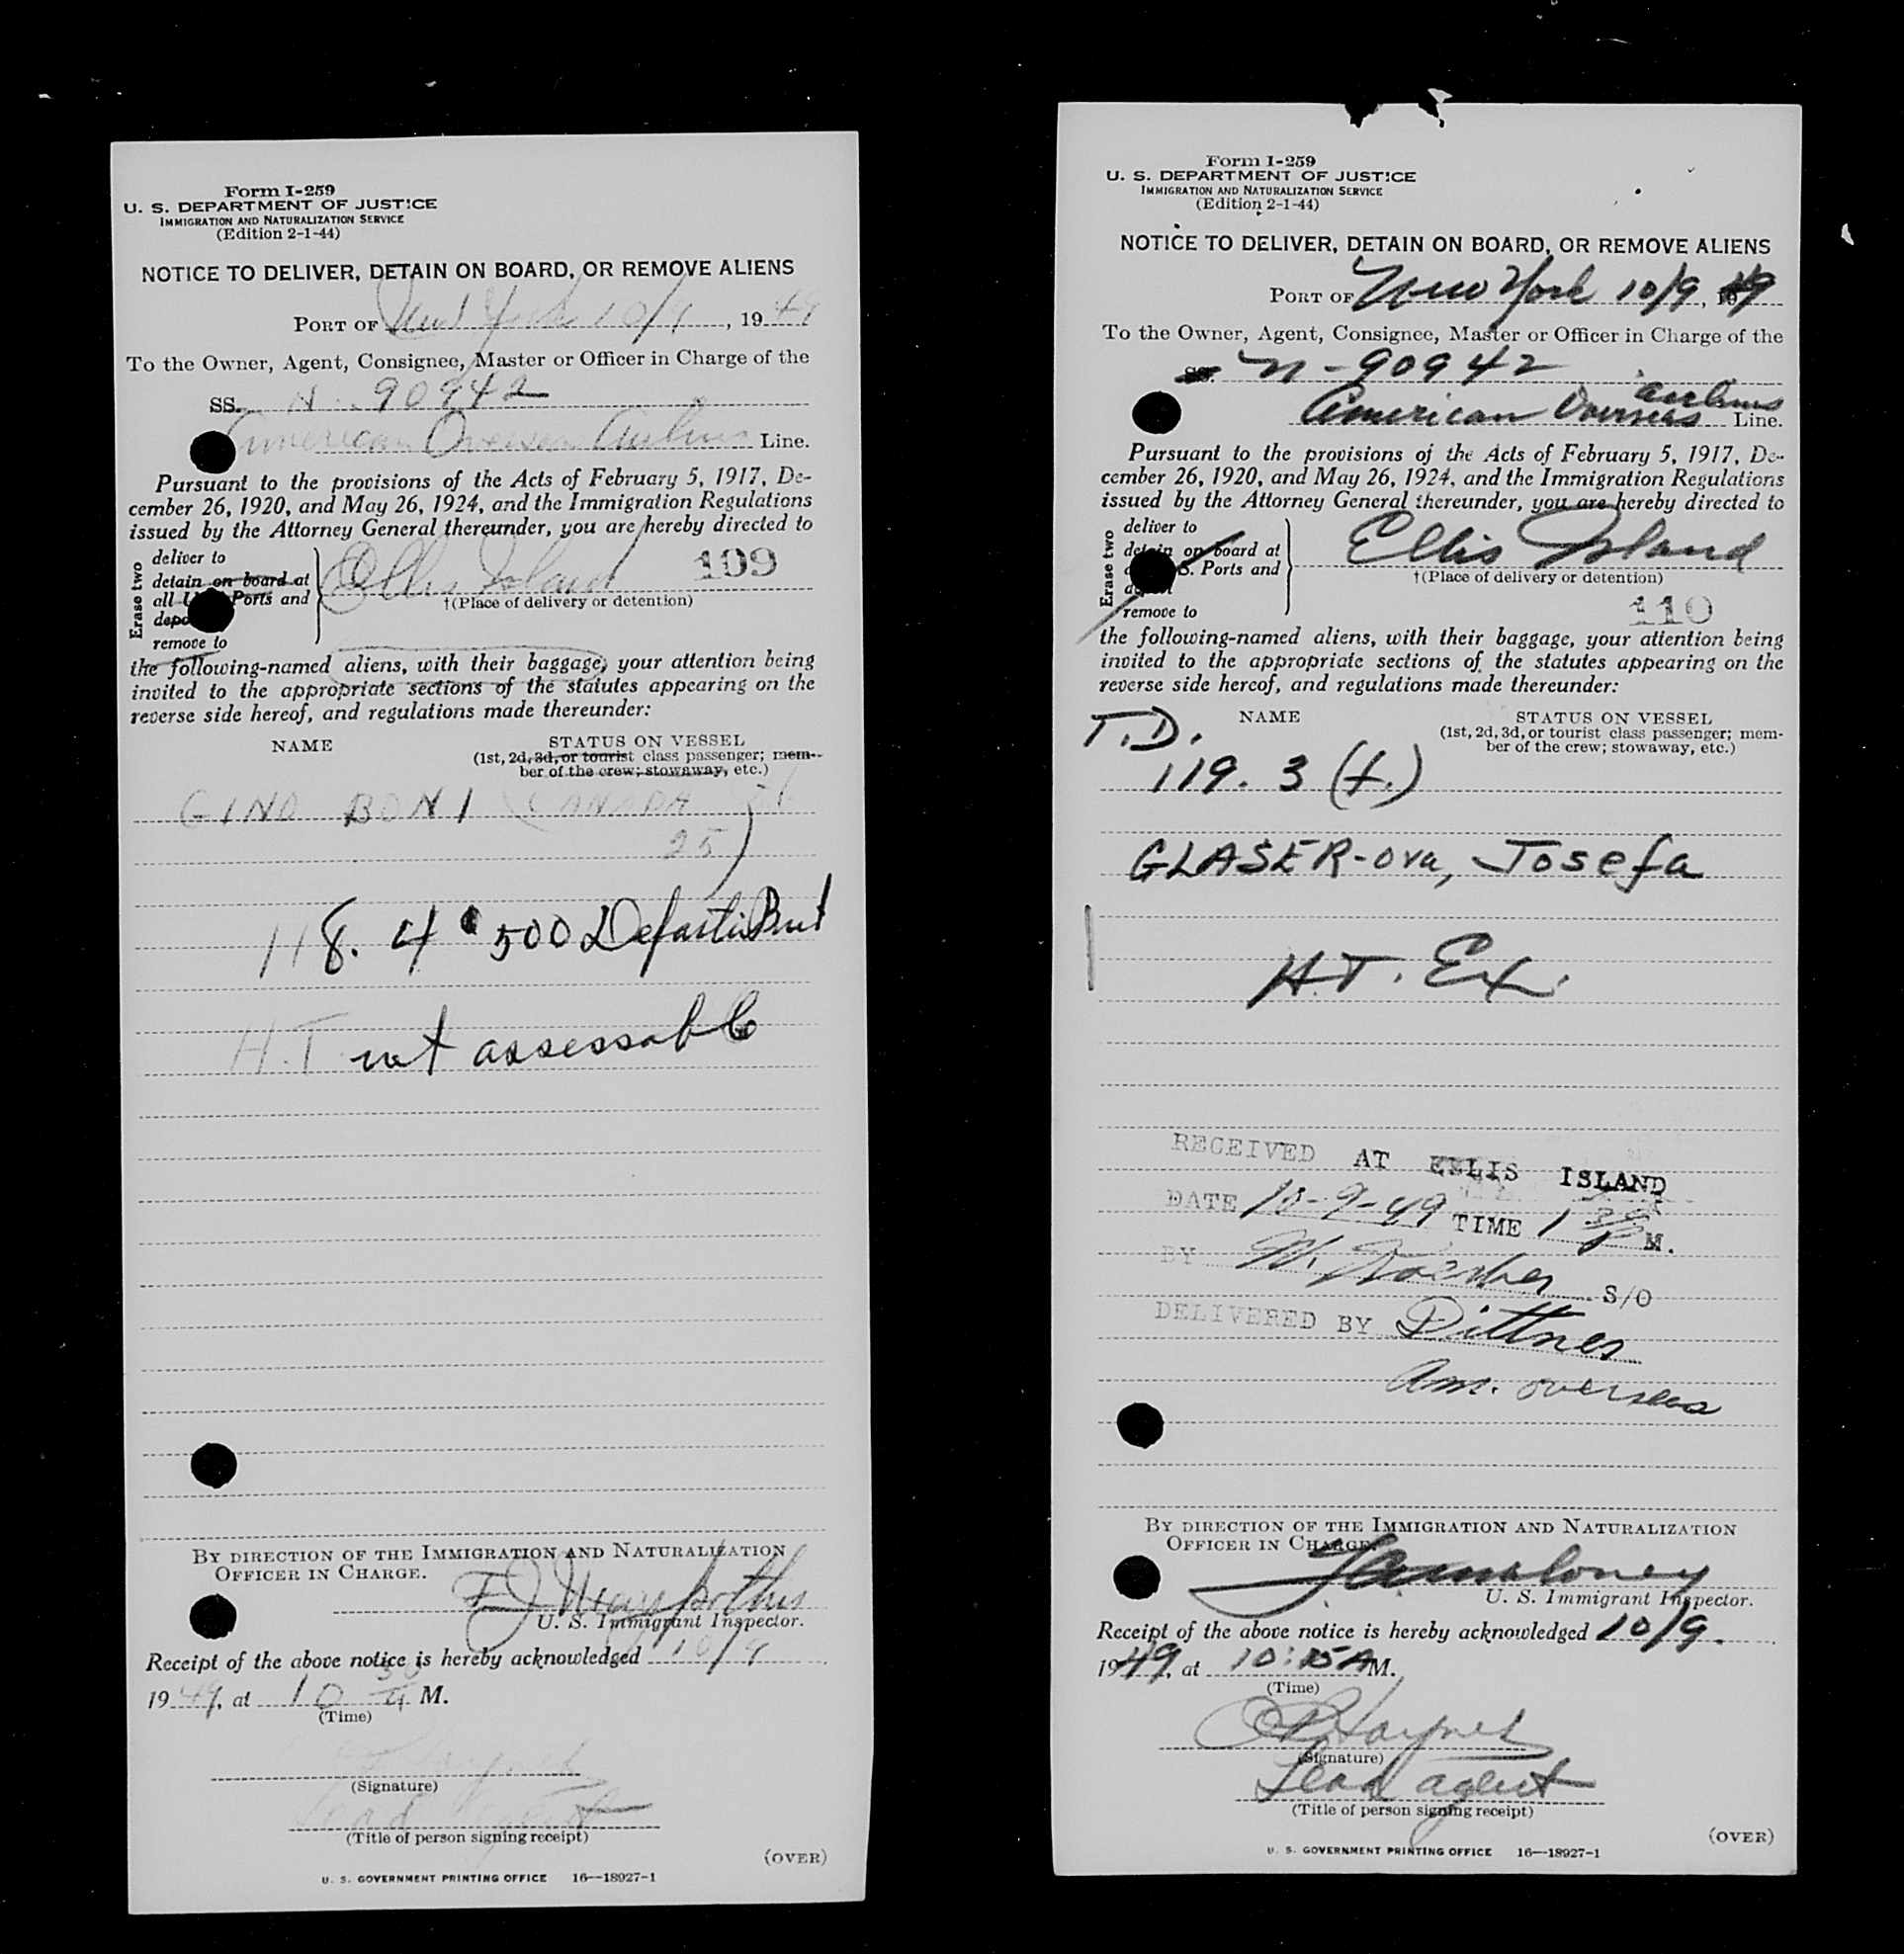 Form I-259
U. S. DEPARTMENT OF JUSTICE
IMMIGRATION AND NATURALIZATION SERVICE
(Edition 2-1-44)
NOTICE TO DELIVER, DETAIN ON BOARD, OR REMOVE ALIENS
PORT OF New York 10/9, 1949
To the Owner, Agent, Consignee, Master or Officer in Charge of the
SS. N-90942
American Overseas Airlines Line.
Pursuant to the provisions of the Acts of February 5, 1917, De-
cember 26, 1920, and May 26, 1924, and the Immigration Regulations
issued by the Attorney General thereunder, you are hereby directed to
Erase two
deliver to
detain on board at
all U. Ports and
depo
remove to
Ellis Island 109
†(Place of delivery or detention)
the following-named aliens, with their baggage, your attention being
invited to the appropriate sections of the statutes appearing on the
reverse side hereof, and regulations made thereunder:
NAME STATUS ON VESSEL
(1st, 2d, 3d, or tourist class passenger; mem-
ber of the crew; stowaway, etc.)
GINO BONI (CANADA
25)
118. 4 500 Departi Bnd
H.T. not assessable
BY DIRECTION OF THE IMMIGRATION AND NATURALIZATION
OFFICER IN CHARGE.
U. S. Immigrant Inspector.
Receipt of the above notice is hereby acknowledged 10/9
1949, at 10 M.
(Time)
(Signature)
Lead Agent
(Title of person signing receipt)
(OVER)
U. S. GOVERNMENT PRINTING OFFICE 16—18927-1
Form I-259
U. S. DEPARTMENT OF JUSTICE
IMMIGRATION AND NATURALIZATION SERVICE
(Edition 2-1-44)
NOTICE TO DELIVER, DETAIN ON BOARD, OR REMOVE ALIENS
PORT OF New York 10/9, 1949
To the Owner, Agent, Consignee, Master or Officer in Charge of the
SS. N-90942
American Overseas Airlines Line.
Pursuant to the provisions of the Acts of February 5, 1917, De-
cember 26, 1920, and May 26, 1924, and the Immigration Regulations
issued by the Attorney General thereunder, you are hereby directed to
Erase two
deliver to
detain on board at
S. Ports and
remove to
Ellis Island
†(Place of delivery or detention)
110
the following-named aliens, with their baggage, your attention being
invited to the appropriate sections of the statutes appearing on the
reverse side hereof, and regulations made thereunder:
T.D. NAME STATUS ON VESSEL
(1st, 2d, 3d, or tourist class passenger; mem-
ber of the crew; stowaway, etc.)
119. 3 (f.)
GLASER-ova, Josefa
H.T. Ex.
RECEIVED AT ELLIS ISLAND
DATE 10-9-49 TIME 1 P M.
BY S/O
DELIVERED BY Dittner
Am. overseas
BY DIRECTION OF THE IMMIGRATION AND NATURALIZATION
OFFICER IN CHARGE.
J A Maloney
U. S. Immigrant Inspector.
Receipt of the above notice is hereby acknowledged 10/9.
1949, at 10:15 A M.
(Time)
Haynes
(Signature)
Lead agent
(Title of person signing receipt)
(OVER)
U. S. GOVERNMENT PRINTING OFFICE 16—18927-1